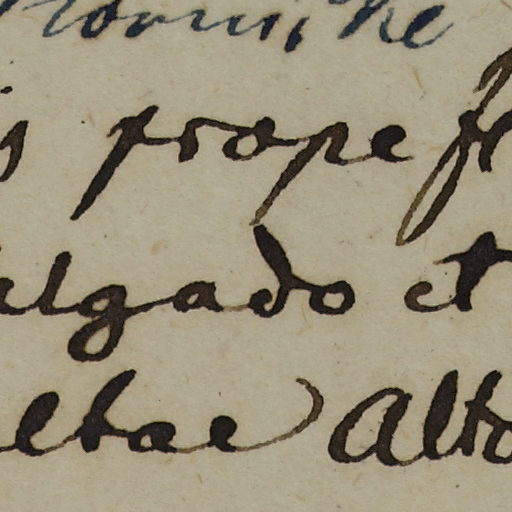 s prope fl
algado et
eltae Alto